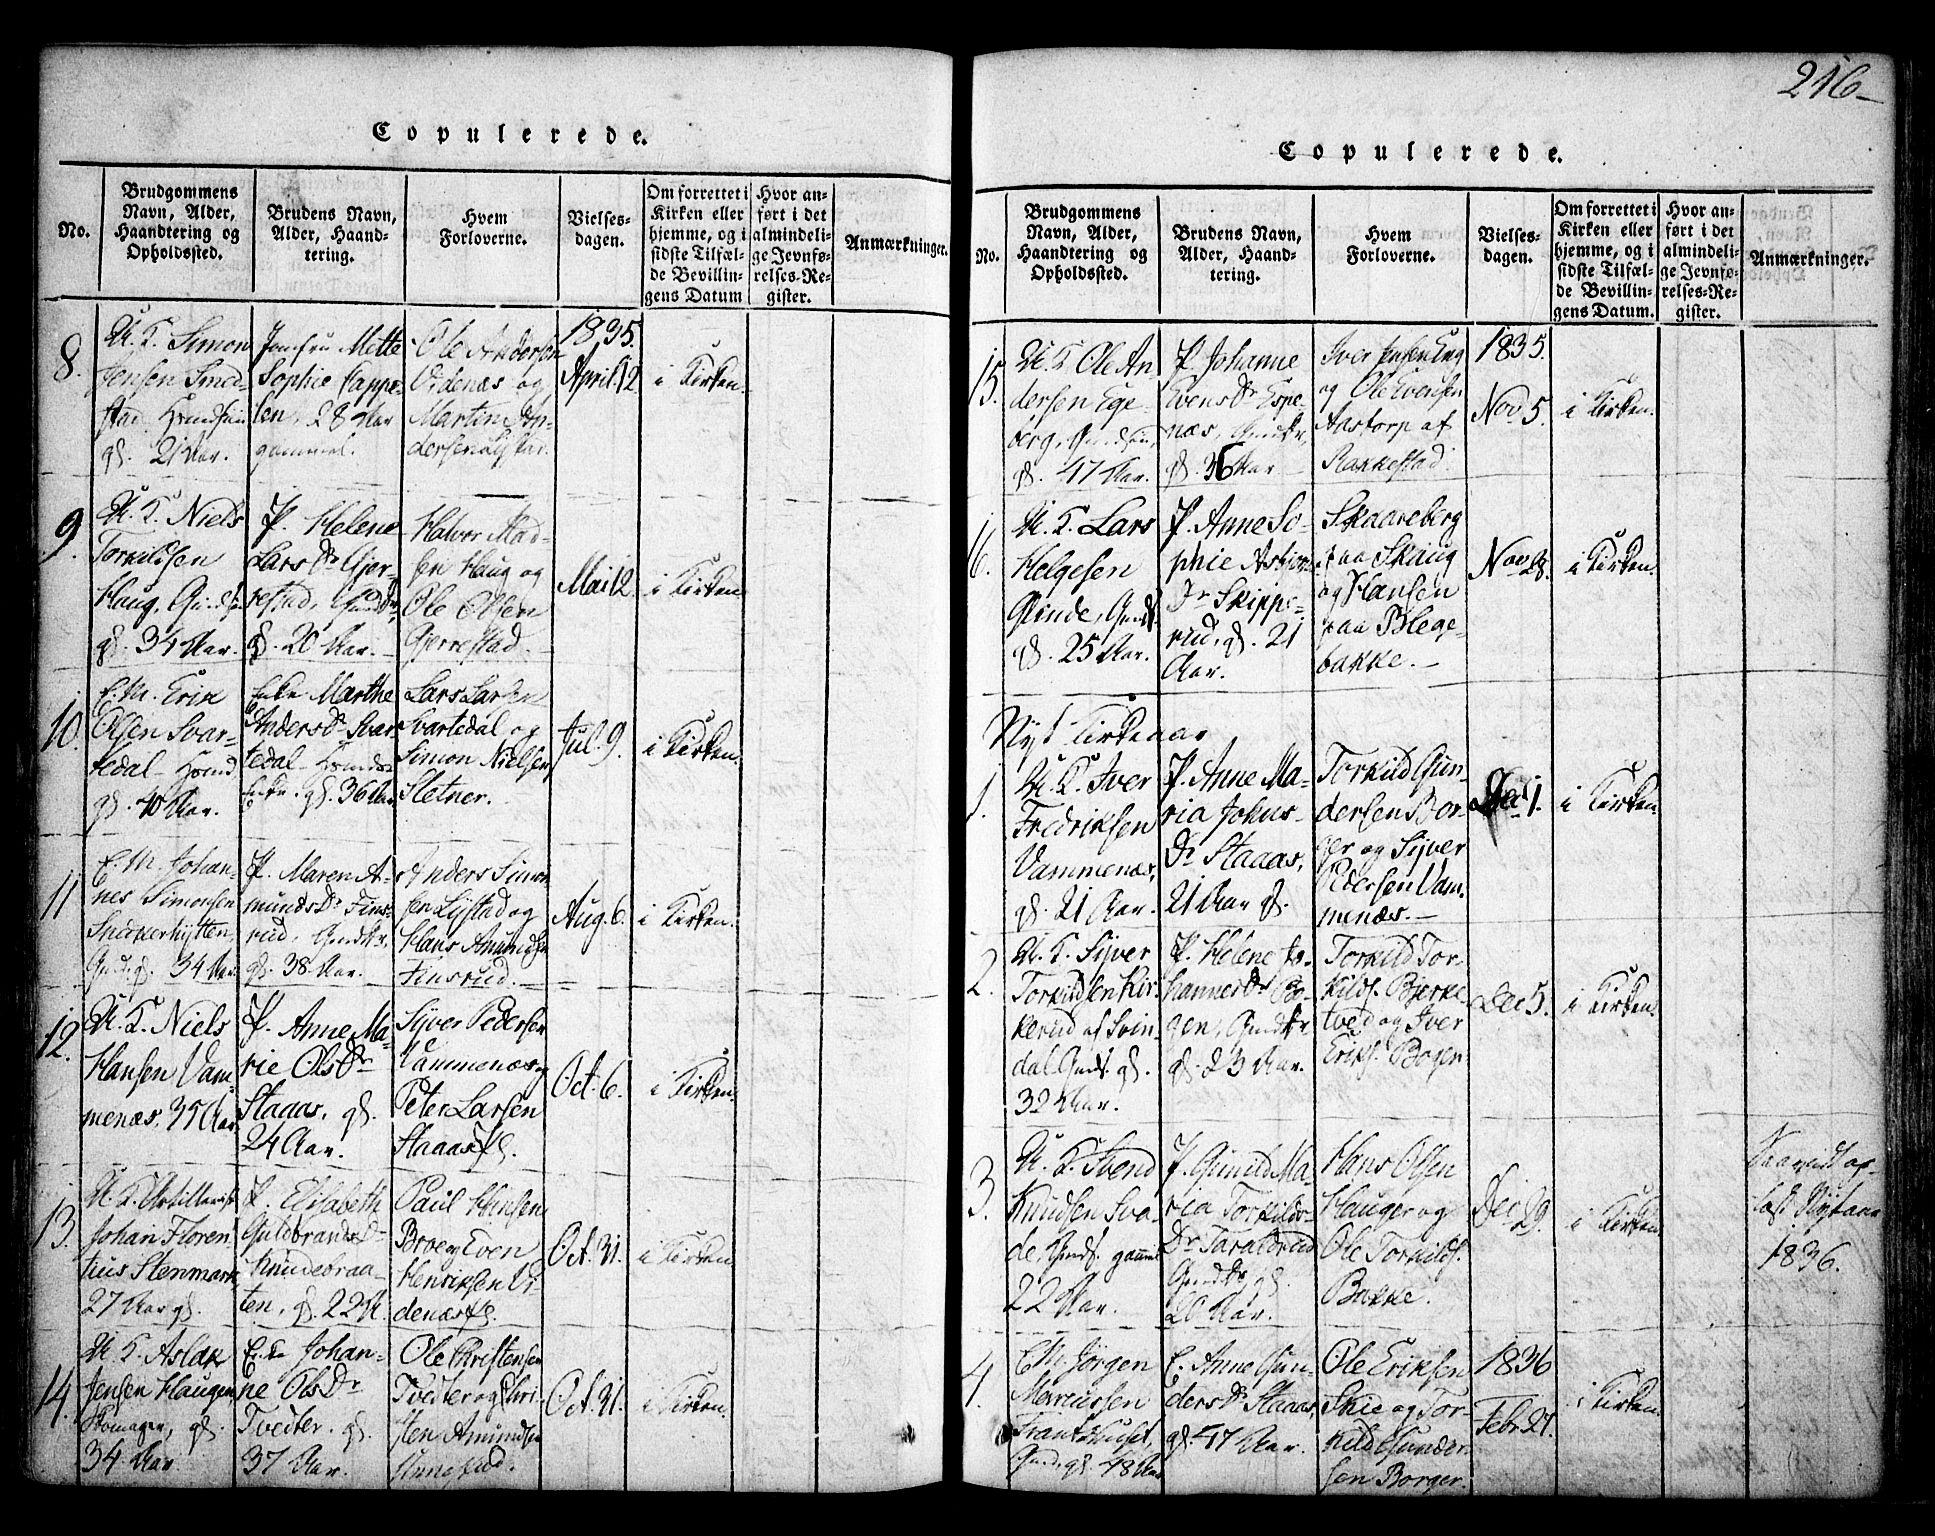 216
Copulerede.
No.
Brudgommens Navn, Alder, Haandtering og Opholdssted.
Brudens Navn, Alder, Haandtering.
Hvem Forloverne.
Vielsesdagen.
Om forrettet i Kirken eller hjemme, og i sidste Tilfælde Bevillingens Datum
Hvor anført i det almindelige Jevnførelses-Register.
Anmærkninger.
8.
U. K. Simon
Jensen Smed-
stad
gl. 21 Aar.
Jomfru Mette
Sophie Cappe-
len, 28 Aar
gammel.
Ole Andersen
Videnæs og
Martin An-
dersen
1835.
April 12
i Kirken.
9.
U. K. Niels
Torkildsen
Haug,
gl. 34 Aar.
P. Helene
Lars Dr Gjer-
restad,
gl. 20 Aar.
Halvor Mad-
sen Haug og
Ole Olsen
Gjerrestad.
Mai 12.
i Kirken
10.
E. M. Erik
Olsen Svar-
tedal
gl. 40 Aar.
Enke Marthe
Anders Dr Svar
tedal
Enke. gl. 36 Aar
Lars Larsen
Svartedal og
Simon Nielsen
Sletner.
Jul. 9.
i Kirken.
11
E. M. Johan-
nes Simonsen
Snikkerhytten,
gl. 34 Aar
P. Maren A-
munds Dr Fins-
rud,
gl. 38 Aar.
Anders Simon
sen Lystad og
Hans Amundsen
Finsrud.
Aug. 6.
i Kirken.
12.
U. K. Niels
Hansen Vam-
menæs, 35 Aar
P. Anne Ma-
rie Ols Dr
Staaas, gl.
24 Aar.
Syver Pedersen
Vammenæs og
Peter Larsen
Staaas
Oct. 6.
i Kirken.
13.
U. K.
Johan Floren
tius Stenmark
27 Aar gl.
P. Elisabeth
Guldbrands D-
Knudebraa-
ten, gl. 22 A.
Paul Hansen
Broe og Even
Henriksen Vi-
denæs
Oct. 31.
i Kirken
14.
U. K. Aslak
Jensen Haugen,
Skomager, gl.
34 Aar
Enke Johan-
ne Ols Dr
Tvedter. gl.
37 Aar.
Ole Christensen
Tvedter og Chri-
sten Amundsen
Oct. 31.
i Kirken.
Copulerede.
No.
Brudgommens Navn, Alder, Haandtering og Opholdssted.
Brudens Navn, Alder, Haandtering.
Hvem Forloverne.
Vielsesdagen.
Om forrettet i Kirken eller hjemme, og i sidste Tilfælde Bevillingens Datum.
Hvor anført i det almindelige Jevnførelses-Register.
Anmærkninger.
15.
U. K. Ole An
dersen Ege-
berg,
gl. 47 Aar.
P. Johanne
Evens Dr Espe-
næs,
gl. 36 Aar
Iver Jensen
og Ole Evensen
Aastorp af
Rakkestad.
1835.
Nov. 5.
i Kirken.
16.
U. K. Lars
Helgesen
Glinde,
gl. 25 Aar.
P. Anne So-
phie
Dr Skippe-
rud, gl. 21
Aar.
Skaareberg
paa Skaug
og Hansen
paa Blege-
bakke.
Nov. 28.
i Kirken.
Nyt Kirkeaar
1.
U. K. Iver
Fredriksen
Vammenæs,
gl. 21 Aar.
P. Anne Ma-
ria Johns-
Dr Staaas,
21 Aar gl.
Torkild Gun-
dersen Bor-
ger og Syver
Pedersen Vam-
menæs.
1.
i Kirken.
2.
U. K. Syver
Torkildsen Kir-
kerud af Svin-
dal gl.
32 Aar.
P. Helene Jo-
hannes Dr Bo-
gen,
gl. 23 Aar.
Torkild Tor-
kilds. Bjerke
tved og Iver
Eriks. Bogen
Dec 5.
i Kirken.
3.
U. K. Svend
Knudsen Sva-
de, gammel
22 Aar.
P. Gunild Ma-
ria Torkilds-
Dr Taraldrud
gl.
20 Aar.
Hans Olsen
Hauger og
Ole Torkilds.
Bakke.
Dec 29.
i Kirken.
1836.
4.
E. M. Jørgen
Marcussen
gl. 48 Aar
E. Anne Gun-
ders Dr Staaas,
gl. 47 Aar.
Ole Eriksen
Skie og Tor-
kild Gunder-
sen Borger.
1836
Febr. 27.
i Kirken.